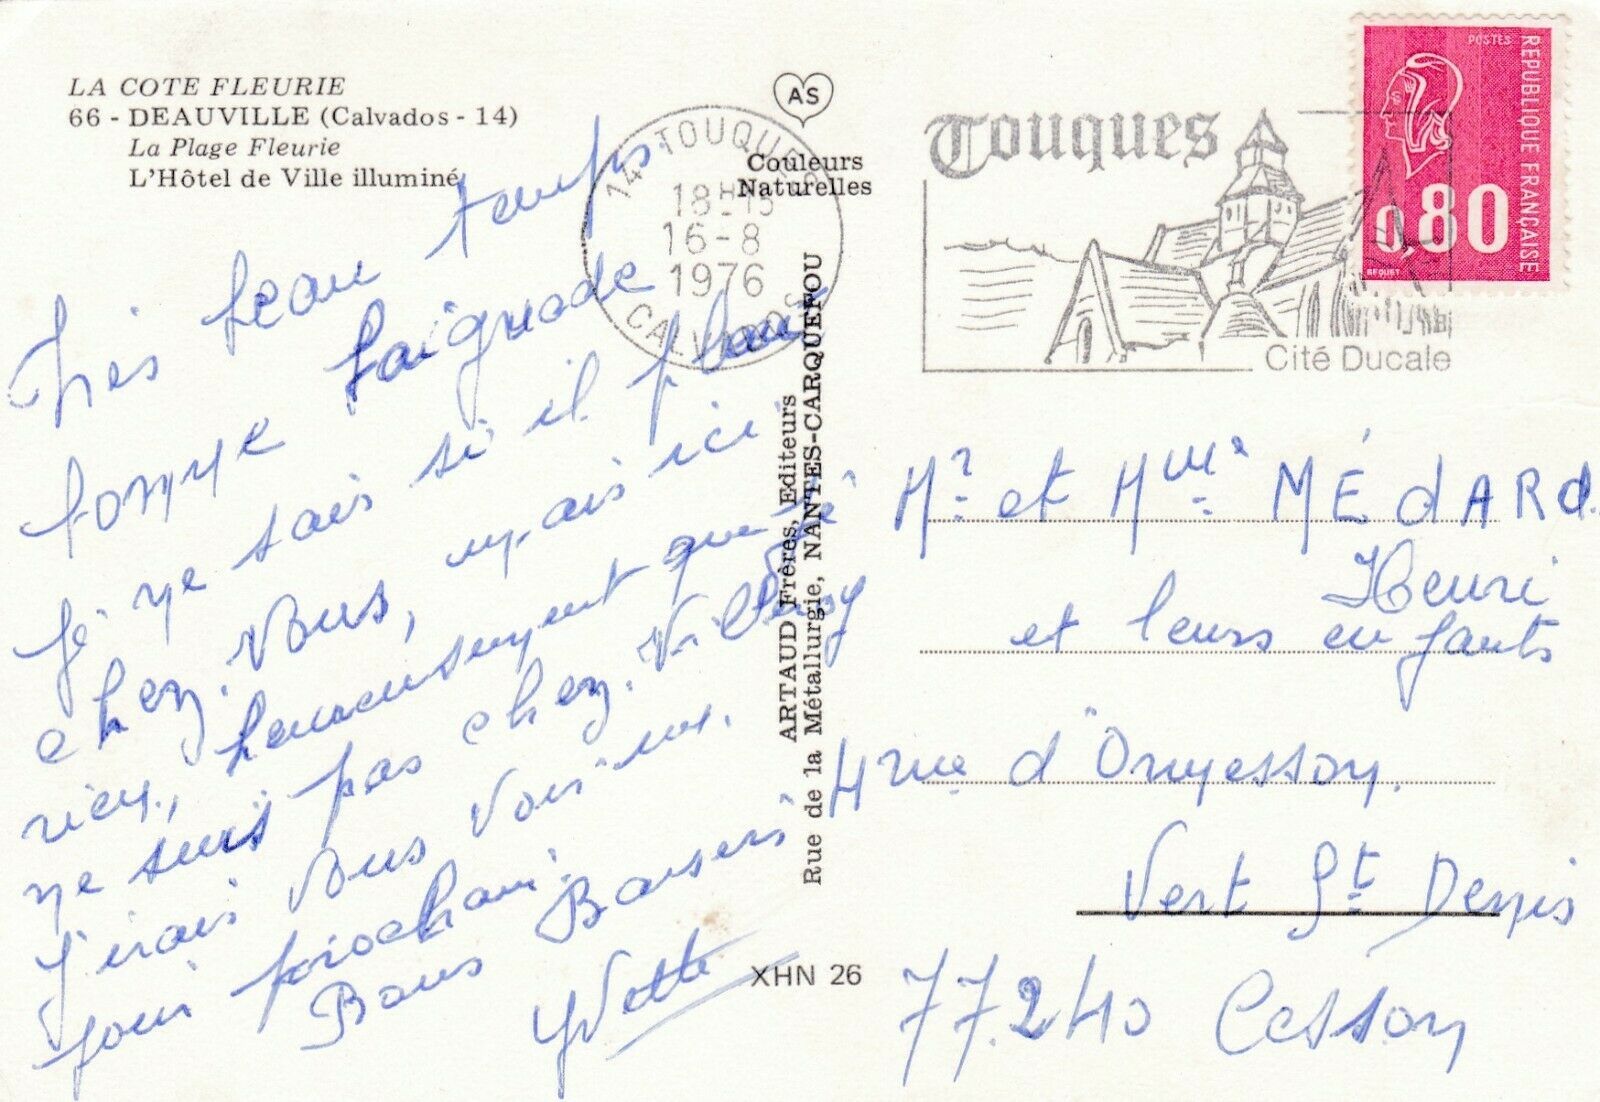 LA COTE FLEURIE
66 - DEAUVILLE (Calvados - 14)
La Plage Fleurie
L'Hôtel de Ville illuminé
AS
Couleurs
Naturelles
14 TOUQUES
18H15
16-8
1976
CALVADOS
Touques
Cité Ducale
POSTES
REPUBLIQUE FRANÇAISE
0,80
BEQUET
Très beau temps.
bonne baignade
je ne sais si il pleut
chez. Vous, mais ici
rien, heureusement que je
ne suis pas chez. Villeroy
j'irais Vous Voir un.
jour prochain.
Bons Baisers
Yvette
ARTAUD Frères, Editeurs
Rue de la Métallurgie, NANTES-CARQUEFOU
XHN 26
Mr et Mme MÉdARd.
Henri
et leurs enfants
4 rue d'Ormesson.
Vert St Denis
77240 Cesson